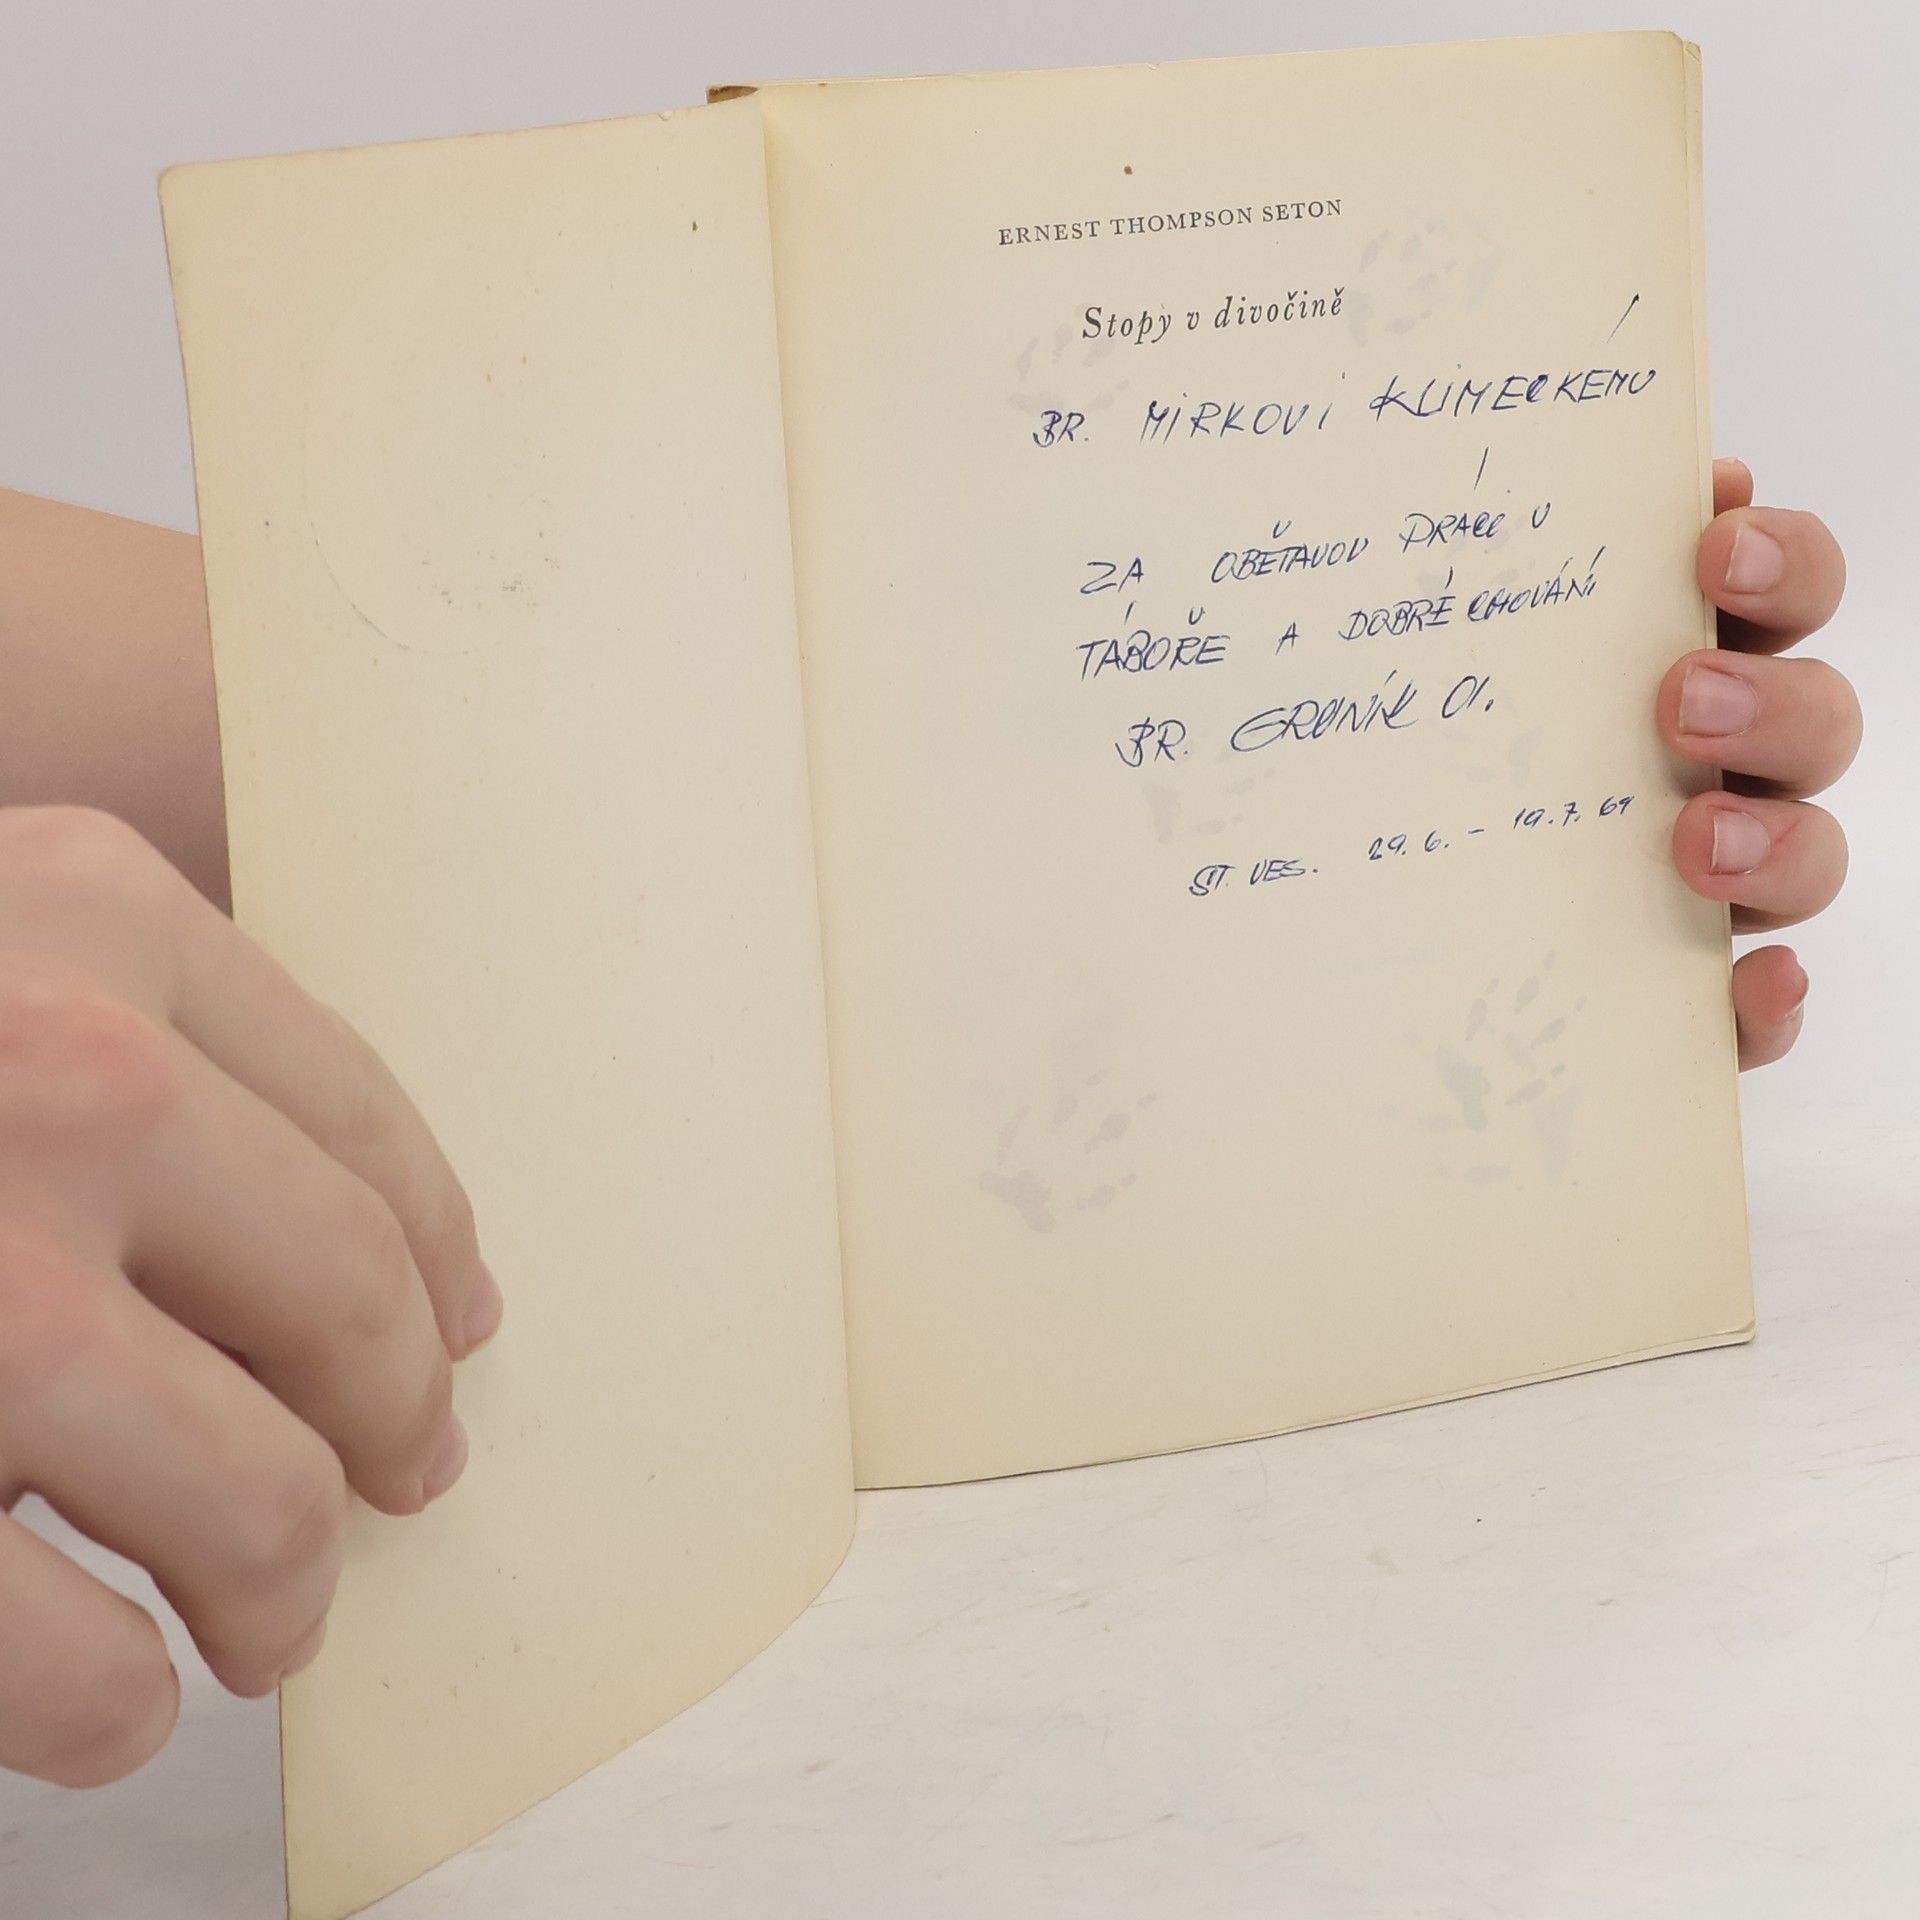 ERNEST THOMPSON SETON
Stopy v divočině
BR. MIRKOVI KLIMECKÉMU
ZA OBĚTAVOU PRÁCI V
TÁBOŘE A DOBRÉ CHOVÁNÍ
BR.
ST. VES. 29. 6. - 19. 7. 69